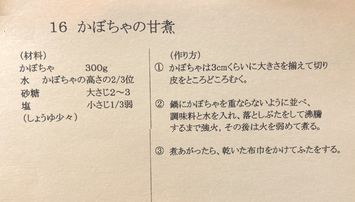 16 かぼちゃの甘煮
(材料)
かぼちゃ 300g
水 かぼちゃの高さの2/3位
砂糖 大さじ2～3
塩 小さじ1/3弱
(しょうゆ少々)
(作り方)
① かぼちゃは3cmくらいに大きさを揃えて切り
皮をところどころむく。
② 鍋にかぼちゃを重ならないように並べ、
調味料と水を入れ、落としぶたをして沸騰
するまで強火，その後は火を弱めて煮る。
③ 煮あがったら、乾いた布巾をかけてふたをする。